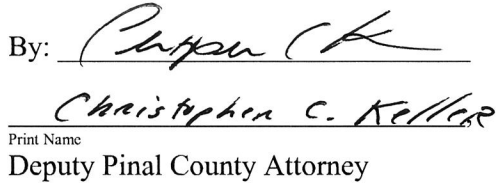 By:
Christopher C. Keller
Print Name
Deputy Pinal County Attorney